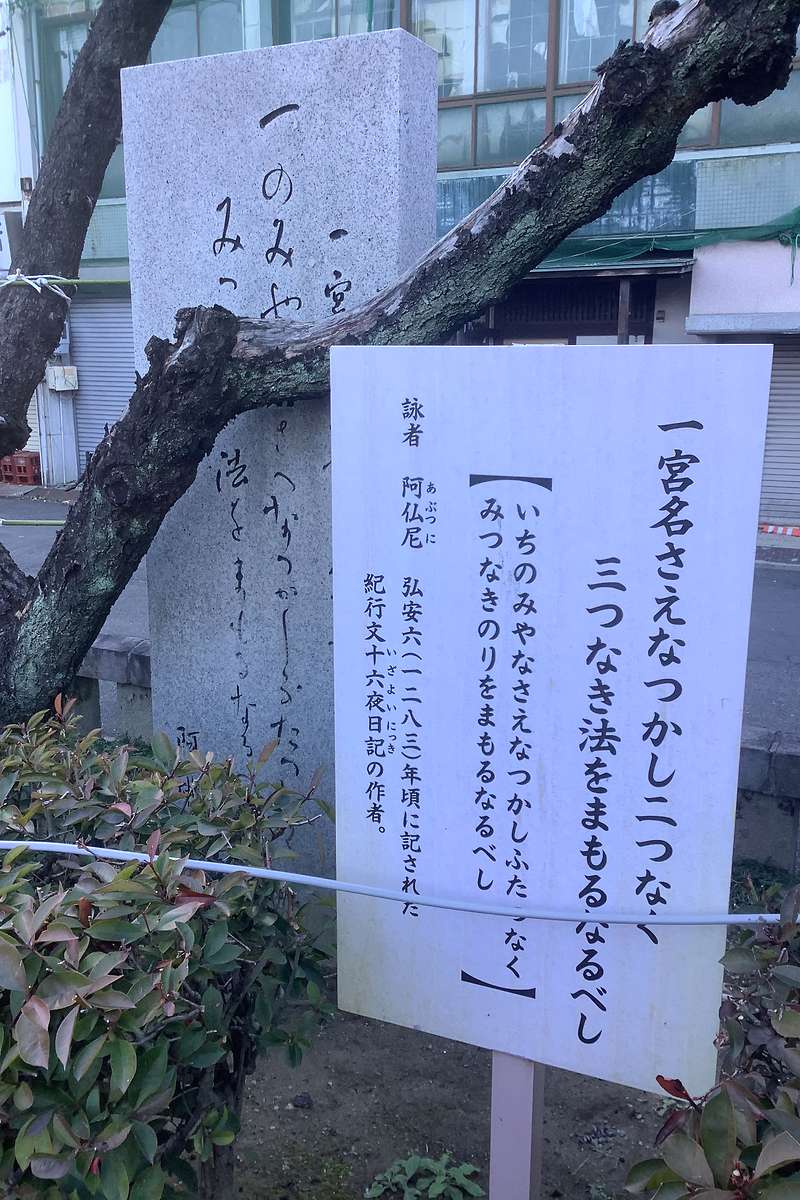 一宮名さえなつかし二つなく
三つなき法をまもるなるべし
【いちのみやなさえなつかしふたつなく
みつなきのりをまもるなるべし】
詠者 阿仏尼 弘安六(一二八三)年頃に記された
あぶつに
紀行文十六夜日記の作者。
いざよいにっき
一宮
一のみや さへなつかしふたつ
みつ 法をまもるなる
阿